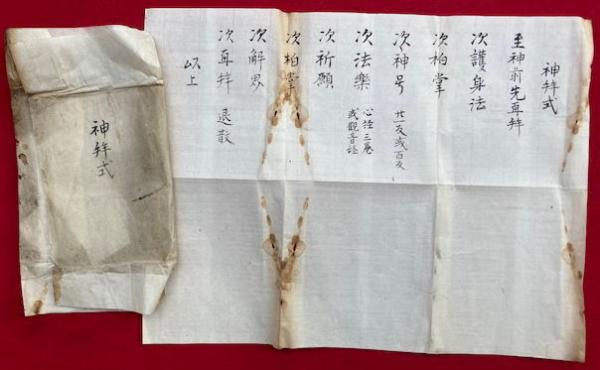 神拝式
至神前先再拝
次護身法
次柏掌
次神号 廿一反或百反
次法樂 心経三巻
或觀音経
次祈願
次柏掌
次解界
次再拝 退散
以上
神拝式